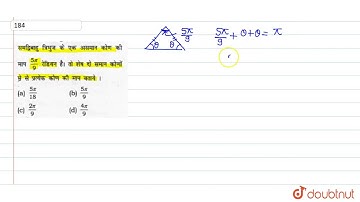 184
समद्विबाहु त्रिभुज के एक असमान कोण की
माप 5π/9 रेडियन है। तो शेष दो समान कोणों
में से प्रत्येक कोण की माप बताये ।
(a) 5π/18 (b) 5π/9
(c) 2π/9 (d) 4π/9
5π/9
θ θ
5π/9 + θ + θ = π
doubtnut